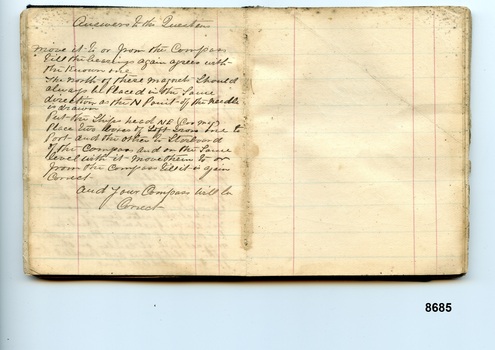 Answers to the Question
move it to or from the Compass
till the bearings again agrees with
the Known one
The North of these magnets should
always be Placed in the Same
direction as the N Point of the needle
is drawn
Put the Ships head NE (Cor mg)
Place two Boxes of Soft Iron one to
Port and the other to Starboard
of the Compass and on the Same
level with it move them to or
from the Compass till it is again
Correct
and your Compass will be
Correct
8685